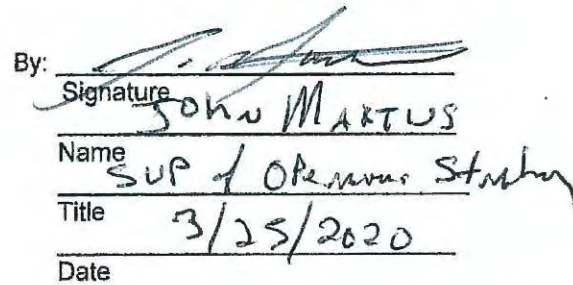 By:
Signature
JOHN MARTUS
Name
SVP of Operations Strategy
Title
3/25/2020
Date